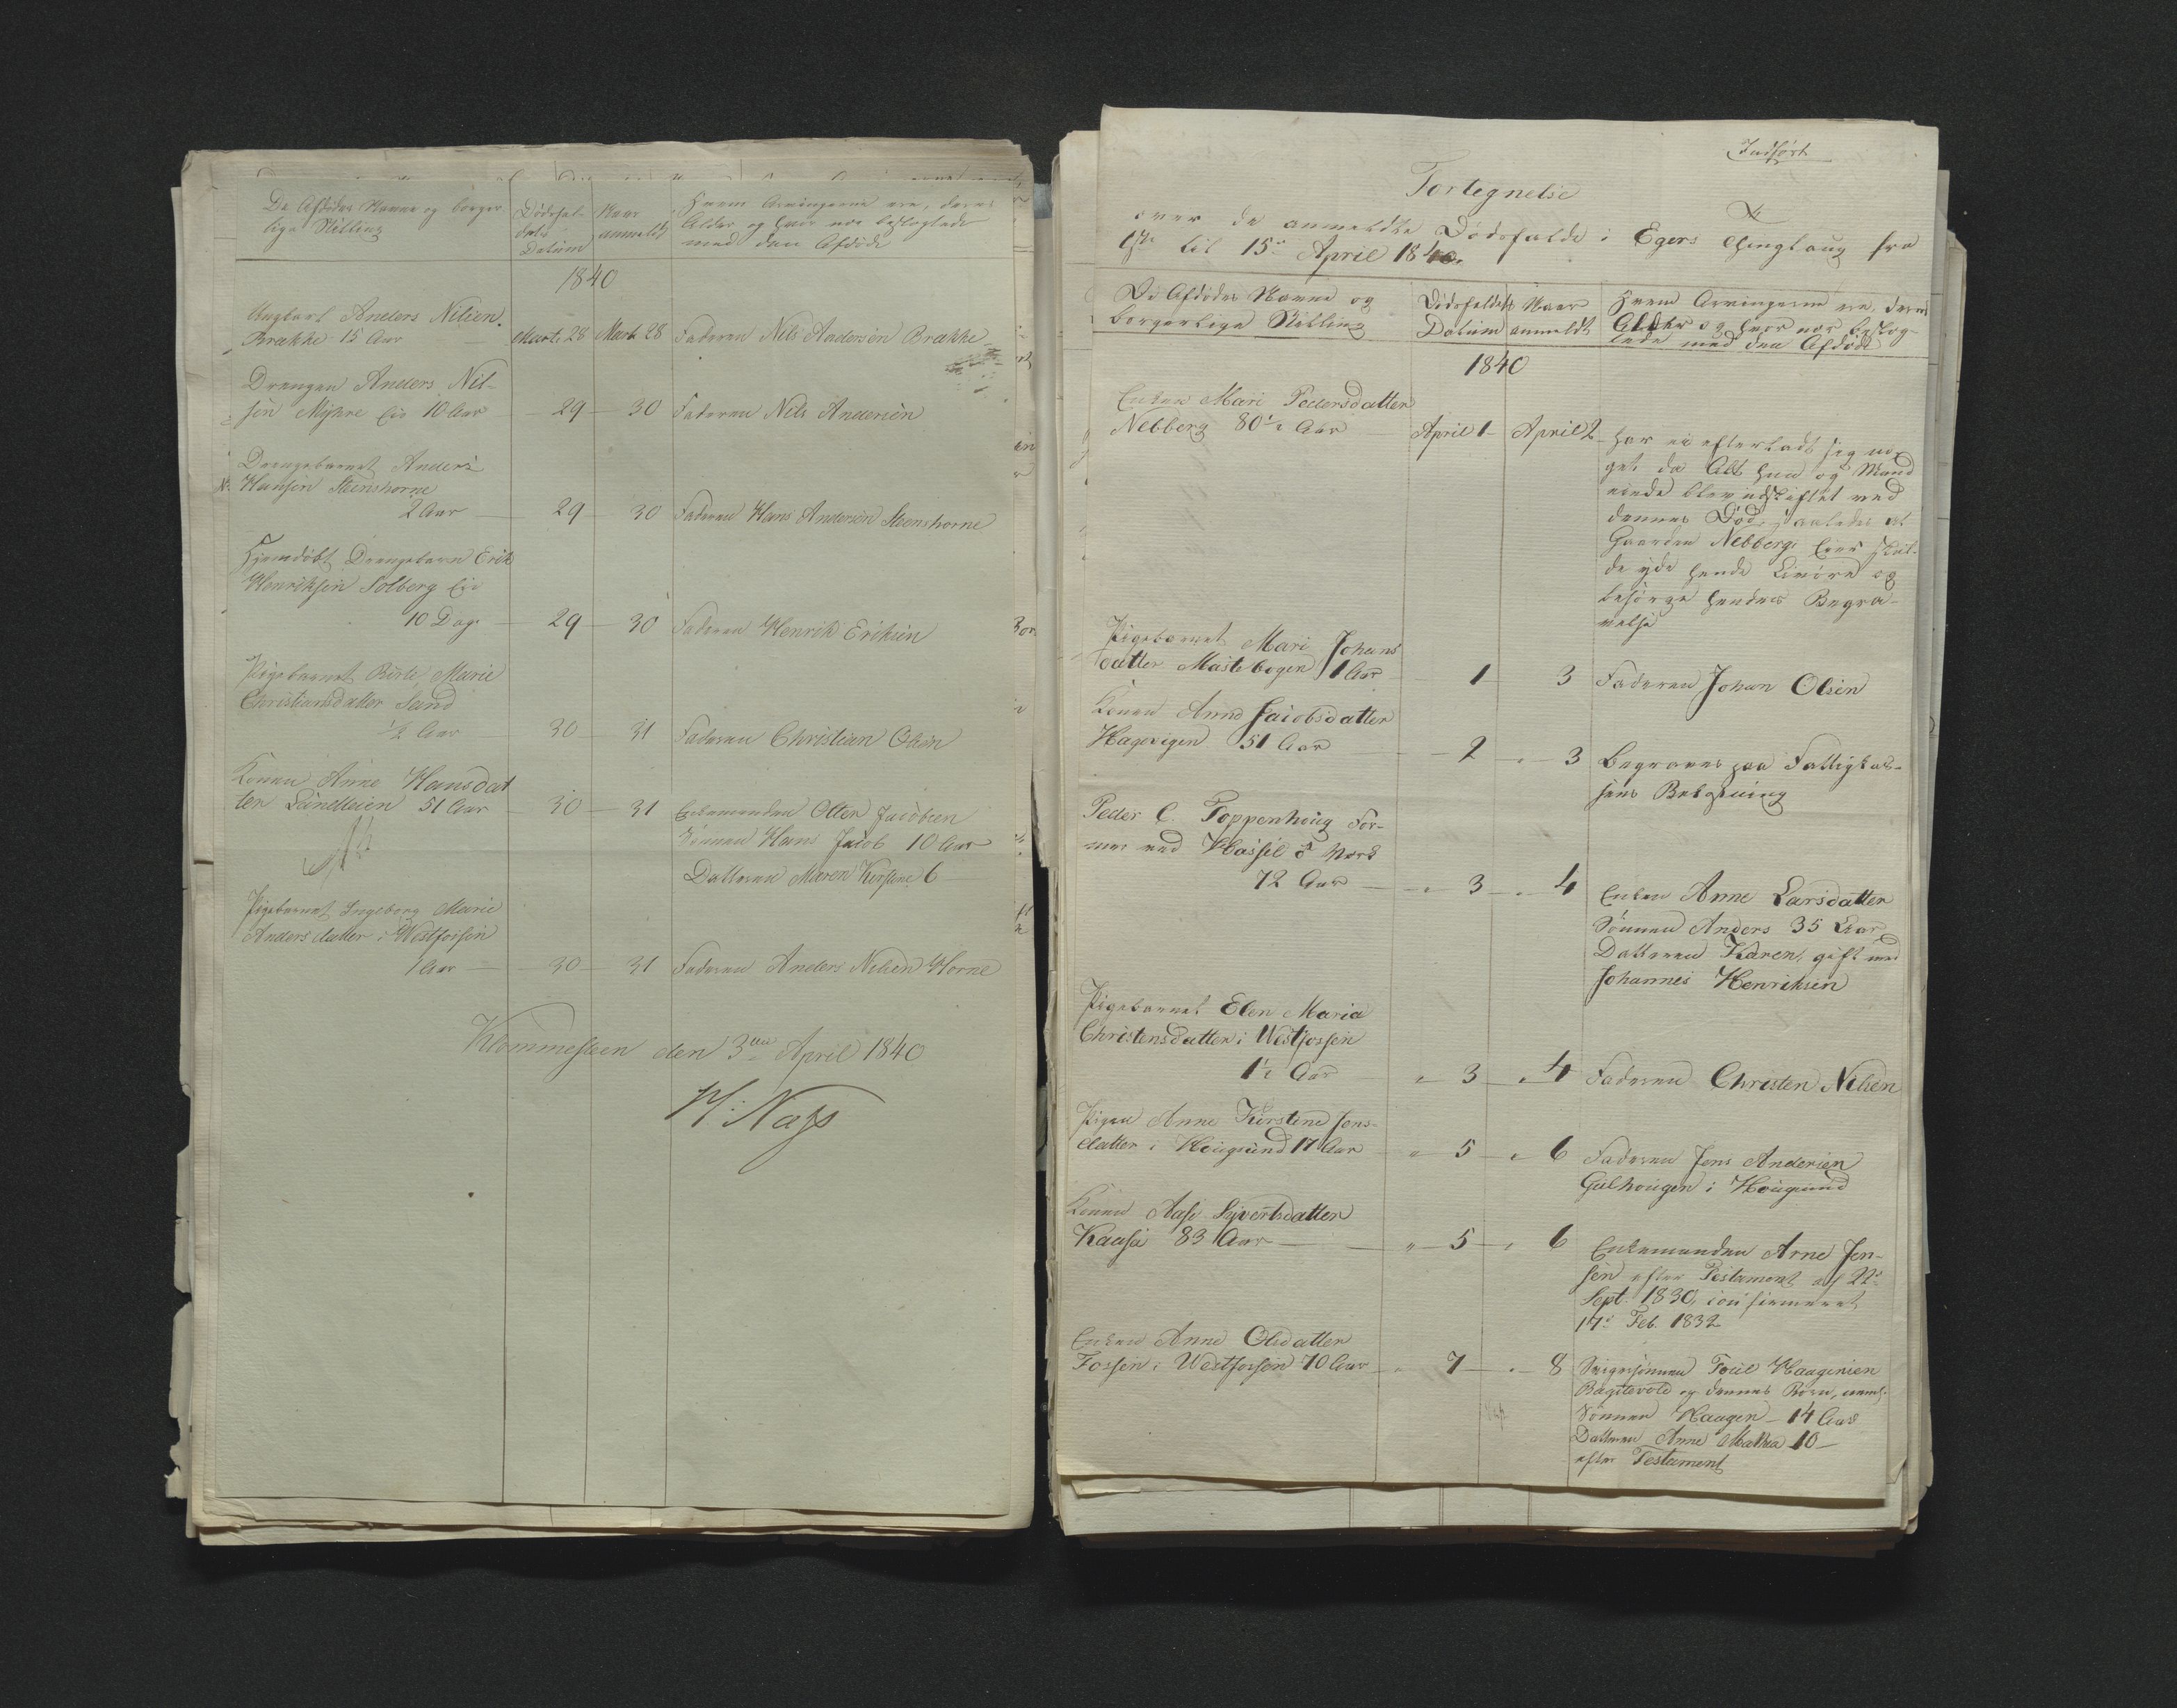 De Afdödes Navne og borger-
lige Stilling
Dödsfal-
dets
Datum
Naar
anmeldt
Hvem Arvingerne ere, deres
Alder og hvor nær beslægtede
med den Afdöde
1840
Ungkarl Anders Nilsen
Brække 15 Aar
Marts 28
Marts 28
Faderen Nils Andersen Brække
Drengen Anders Nil-
sen Myhre Eie 10 Aar
29
30
Faderen Nils Andersen
Drengebarnet Anders
Hansen Steenshorne
2 Aar
29
30
Faderen Hans Andersen Steenshorne
Hjemdöbt Drengebarn Erik
Henriksen Solberg Eie
10 Dage
29
30
Faderen Henrik Eriksen
Pigebarnet Birte Marie
Christiansdatter Sand
½ Aar
30
31
Faderen Christian Olsen
Konen Anne Hansdat
ter 51 Aar
30
31
Enkemanden Otter Jacobsen
Sönnen Hans Jacob 10 Aar
Datteren Maren Kirstine 6
Pigebarnet Ingeborg Marie
Andersdatter i Westfossen
1 Aar
30
31
Faderen Anders Nilsen Horne
Krommesteen den 3die April 1840
Indfört
Fortegnelse
over de anmeldte Dödsfalde i Egers Thinglaug fra
1ste til 15de April 1840.
De Afdödes Navne og
borgerlige Stilling
Dödsfaldets
Datum
Naar
anmeldt
Hvem Arvingerne ere, deres
Alder og hvor nær beslæg-
tede med den Afdöde
1840
Enken Mari Pedersdatter
Nebberg 80½ Aar
April 1
April 2
har ei efterladt sig no-
get da Alt hun og Mand
eiede blev udskiftet ved
dennes Död, saaledes at
Gaarden Nebbergs Eier skul-
de yde hende Livöre og
besörge hendes Begra-
velse
Pigebarnet Mari Johans
datter Mastebogen 1 Aar
1
3
Faderen Johan Olsen
Konen Anne Jacobsdatter
Hagevigen 51 Aar
2
3
Begraves paa Fattigkas-
sens Bekostning
Peder C. Toppenhoug For-
mer ved Hassel Værk
72 Aar
3
4
Enken Anne Larsdatter
Sönnen Anders 35 Aar
Datteren Karen, gift med
Johannes Henriksen
Pigebarnet Elen Maria
Christensdatter i Westfossen
1½ Aar
3
4
Faderen Christen Nilsen
Pigen Anne Kirstine Jens-
datter i Hougsund 17 Aar
5
6
Faderen Jens Andersen
Gulhougen i Hougsund
Konen Aase Syvertsdatter
Kaasa 83 Aar
5
6
Enkemanden Arne Jen-
sen efter Testament af 22de
Sept. 1830, confirmeret
17de Feb. 1832
Enken Anne Olsdatter
Fossen i Westfossen 70 Aar
7
8
Svigersönnen Haagensen
og dennes Börn, neml.
Sönnen Haagen 14 Aar
Datteren Anne Mathea 10
efter Testament